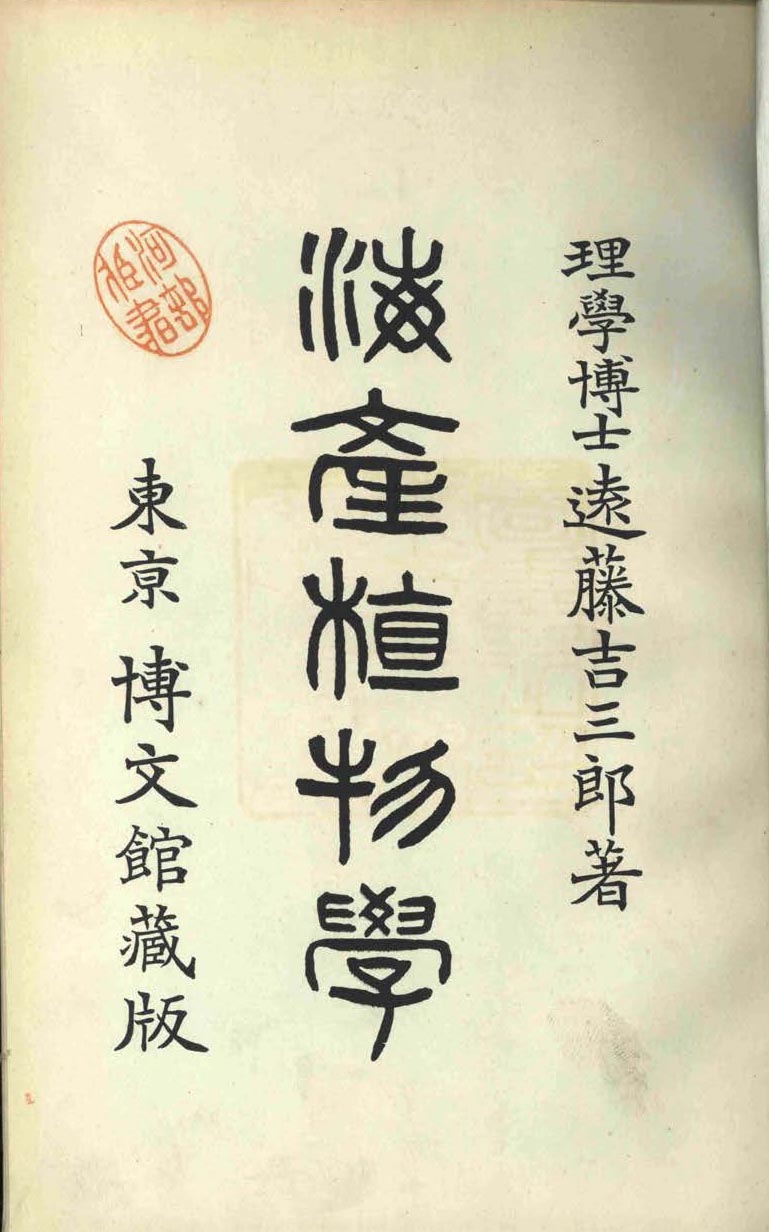 理學博士遠藤吉三郎著
海產植物學
東京 博文館藏版